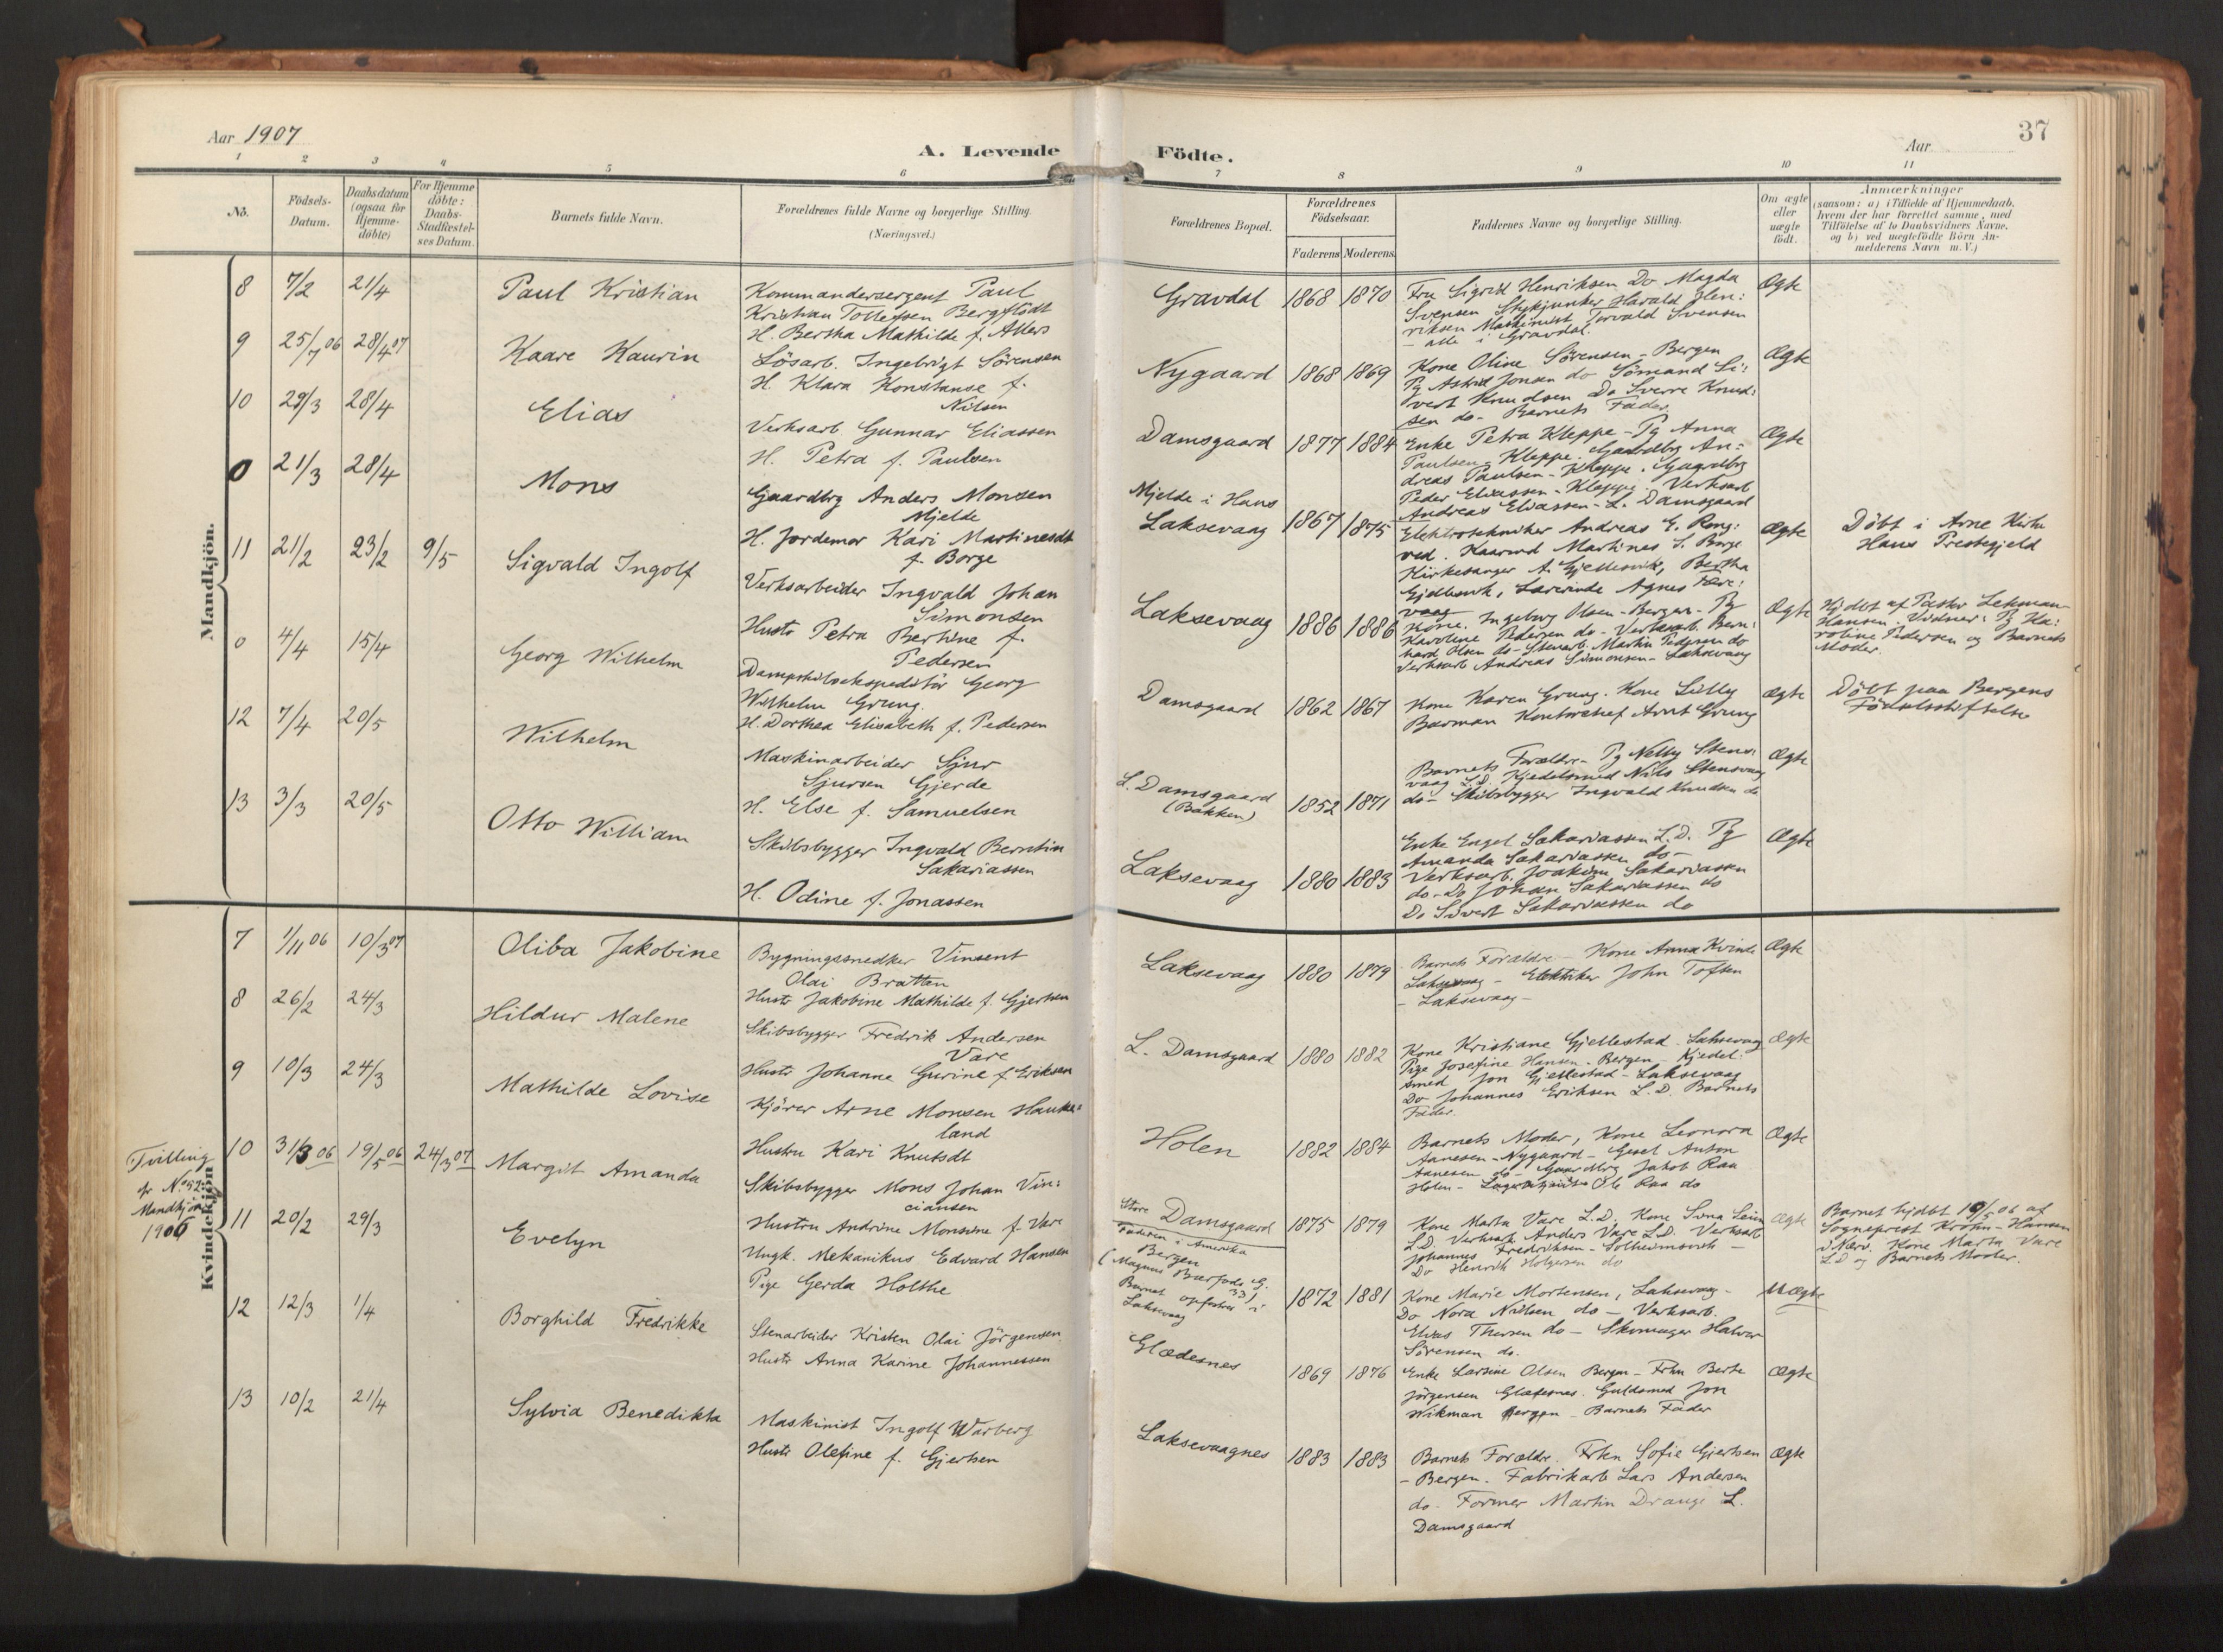 Aar 1907
A. Levende Födte.
Aar
37
1 2 3 4 5 6 7 8 9 10 11
No.
Födsels-
Datum.
Daabsdatum
(ogsaa for
Hjemme-
döbte)
For Hjemme
döbte:
Daabs-
Stadfæstel-
ses Datum.
Barnets fulde Navn.
Forældrenes fulde Navne og borgerlige Stilling.
(Næringsvei.)
Forældrenes Bopæl.
Forældrenes
Födselsaar.
Faderens Moderens
Faddernes Navne og borgerlige Stilling.
Om ægte
eller
uægte
födt.
Anmærkninger
(saasom: a) i Tilfælde af Hjemmedaab,
hvem der har forrettet samme, med
Tilföielse af to Daabsvidners Navne,
og b) ved uægtefödte Börn An-
melderens Navn m. V.)
Mandkjön.
8 7/2 21/4
Paul Kristian
Kommandersergent Paul
Kristian Tollefsen Bergflödt
H. Bertha Mathilde f. Allers
Gravdal
1868 1870
Fru Sigrid Henriksen Do Magda
Svensen Stykjunker Harald Hen:
riksen Maskinist Torvald Svensen
- alle i Gravdal.
Ægte
9 25/7 06 28/4 07
Kaare Kaurin
Lösarb. Ingebrigt Sörensen
H. Klara Konstanse f.
Nilsen
Nygaard
1868 1869
Kone Oline Sörensen - Bergen
Pg Astrid Jonsen do Sömand Si:
vert Knudsen Do Sverre Knud:
sen do - Barnets Fader.
Ægte
10 29/3 28/4
Elias
Verksarb Gunnar Eliassen
H. Petra f. Paulsen
Damsgaard
1877 1884
Enke Petra Kleppe - Pg Anna
Paulsen - Kleppe. Gaardbrg An-
dreas Paulsen - Kleppe. Gaardbrg
Peder Eliassen - Kleppe. Verksarb
Andreas Eliassen - L. Damsgaard
Ægte
0 21/3 28/4
Mons
Gaardbrg Anders Monsen
Mjelde
H. Jordemor Kari Martinesdt
f. Borge
Mjelde i Haus
Laksevaag
1867 1875
Elektrotekniker Andreas E. Rong:
ved. Kaarmd Martines S. Borge
Kirkesanger A. Gjellesvik, Bertha
Gjelbsvik, Lærerinde Agnes Kære:
vaag
Ægte
Döbt i Arne Kirke
Haus Prestegjeld
11 21/2 23/2 9/5
Sigvald Ingolf
Verksarbeider Ingvald Johan
Simonsen
Hustr Petra Bertine f.
Pedersen
Laksevaag
1886 1886
Kone. Ingeborg Olsen - Bergen - Pg
Karoline Pedersen do - Verksarb Bern:
hard Olsen do - Stenarb. Martin Pedersen do
Verksarb Andreas Simonsen - Laksevaag
Ægte
Hjdbt af Pastor Lekman-
Hansen. Vidner: Pg Ka:
roline Pedersen og Barnets
Moder.
0 4/4 15/4
Georg Wilhelm
Dampskibsekspeditör Georg
Wilhelm Grung.
H. Dorthea Elisabeth f. Pedersen
Damsgaard
1862 1867
Kone Karen Grung. Kone Lilly
Barman Kontorchef Arnt Grung
ægte
Döbt paa Bergens
Födselsstiftelse
12 7/4 20/5
Wilhelm
Maskinarbeider Sjur
Sjursen Gjerde
H. Else f. Samuelsen
L. Damsgaard
(Bakken)
1852 1871
Barnets Forældre - Pg Nelly Stens:
vaag L.D. Kjedelsmed Nils Stensvaag
do - Skibsbygger Ingvald Knudsen do
Ægte
13 3/3 20/5
Otto William
Skibsbygger Ingvald Berntin
Sakariassen
H. Odine f. Jonassen
Laksevaag
1880 1883
Enke Engel Sakariassen L.D. Pg
Amanda Sakariassen do -
Verksarb. Joakim Sakariassen
do - Do Johan Sakariassen do
Do Sivert Sakariassen do
Ægte
Kvindekjön
7 1/11 06 10/3 07
Oliba Jakobine
Bygningssnedker Vinsent
Olai Bratten
Hustr Jakobine Mathilde f. Gjertsen
Laksevaag
1880 1879
Barnets Forældre - Kone Anna Kvinde
Laksevaag - Elektriker John Toften
- Laksevaag -
Ægte
8 26/2 24/3
Hildur Malene
Skibsbygger Fredrik Andersen
Vare
Hustr Johanne Gurine f Eriksen
L. Damsgaard
1880 1882
Kone Kristiane Gjellestad. Laksevaag
Pige Josefine Hansen - Bergen - Kjedel:
smed Jon Gjellestad - Laksevaag
Do Johannes Eriksen L.D. Barnets
Fader.
Ægte
9 10/3 24/3
Mathilde Lovise
Kjörer Arne Monsen Hauke:
land
Hustru Kari Knutsdt
Holen
1882 1884
Barnets Moder, Kone Leonora
Aanesen - Nygaard - Gesel Anton
Aanesen do - Gaardbrg Jakob Raa
Holen - Ole Raa do
Ægte
Tvilling
af No 92
Mandkjön
1906
10 31/3 06 19/5 06 24/3 07
Margit Amanda
Skibsbygger Mons Johan Vin:
ciansen
Hustru Andrine Monsine f. Vare
Store Damsgaard
1875 1879
Kone Marta Vare L.D, Kone
L.D. Verksarb Anders Vare L.D. Verksarb
Johannes Fredriksen - Solheimsvik -
Do Henrik Holgersen do
Ægte
Barnet hjdbt 19/5 06 af
Sogneprest Krohn-Hansen
i Nærv. Kone Marta Vare
L.D og Barnets Moder.
11 20/2 29/3
Evelyn
Ungk. Mekanikus Edvard Hansen
Pige Gerda Holthe
Faderen i Amerika
Bergen
(Magnus Barfods G.
33)
Barnet opfostres i
Laksevaag
1872 1881
Kone Marie Mortensen, Laksevaag -
Do Nora Nilsen do - Verksarb.
Elias Thersen do - Skomager Halvor
Sörensen do.
Uægte
12 12/3 1/4
Borghild Fredrikke
Stenarbeider Kristen Olai Jörgensen
Hustr Anna Karine Johannessen
Glædesnes
1869 1876
Enke Larsine Olsen Bergen - Frkn Berte
Jörgensen Glædesnes. Guldsmed Jon
Wikman Bergen - Barnets Fader
Ægte
13 10/2 21/4
Sylvia Benedikta
Maskinist Ingolf Warberg
Hustr Olefine f. Gjertsen
Laksevaagnes
1883 1883
Barnets Forældre. Frkn Sofie Gjertsen
- Bergen. Fabrikarb Lars Andersen
do - Former Martin Drange L.
Damsgaard
Ægte